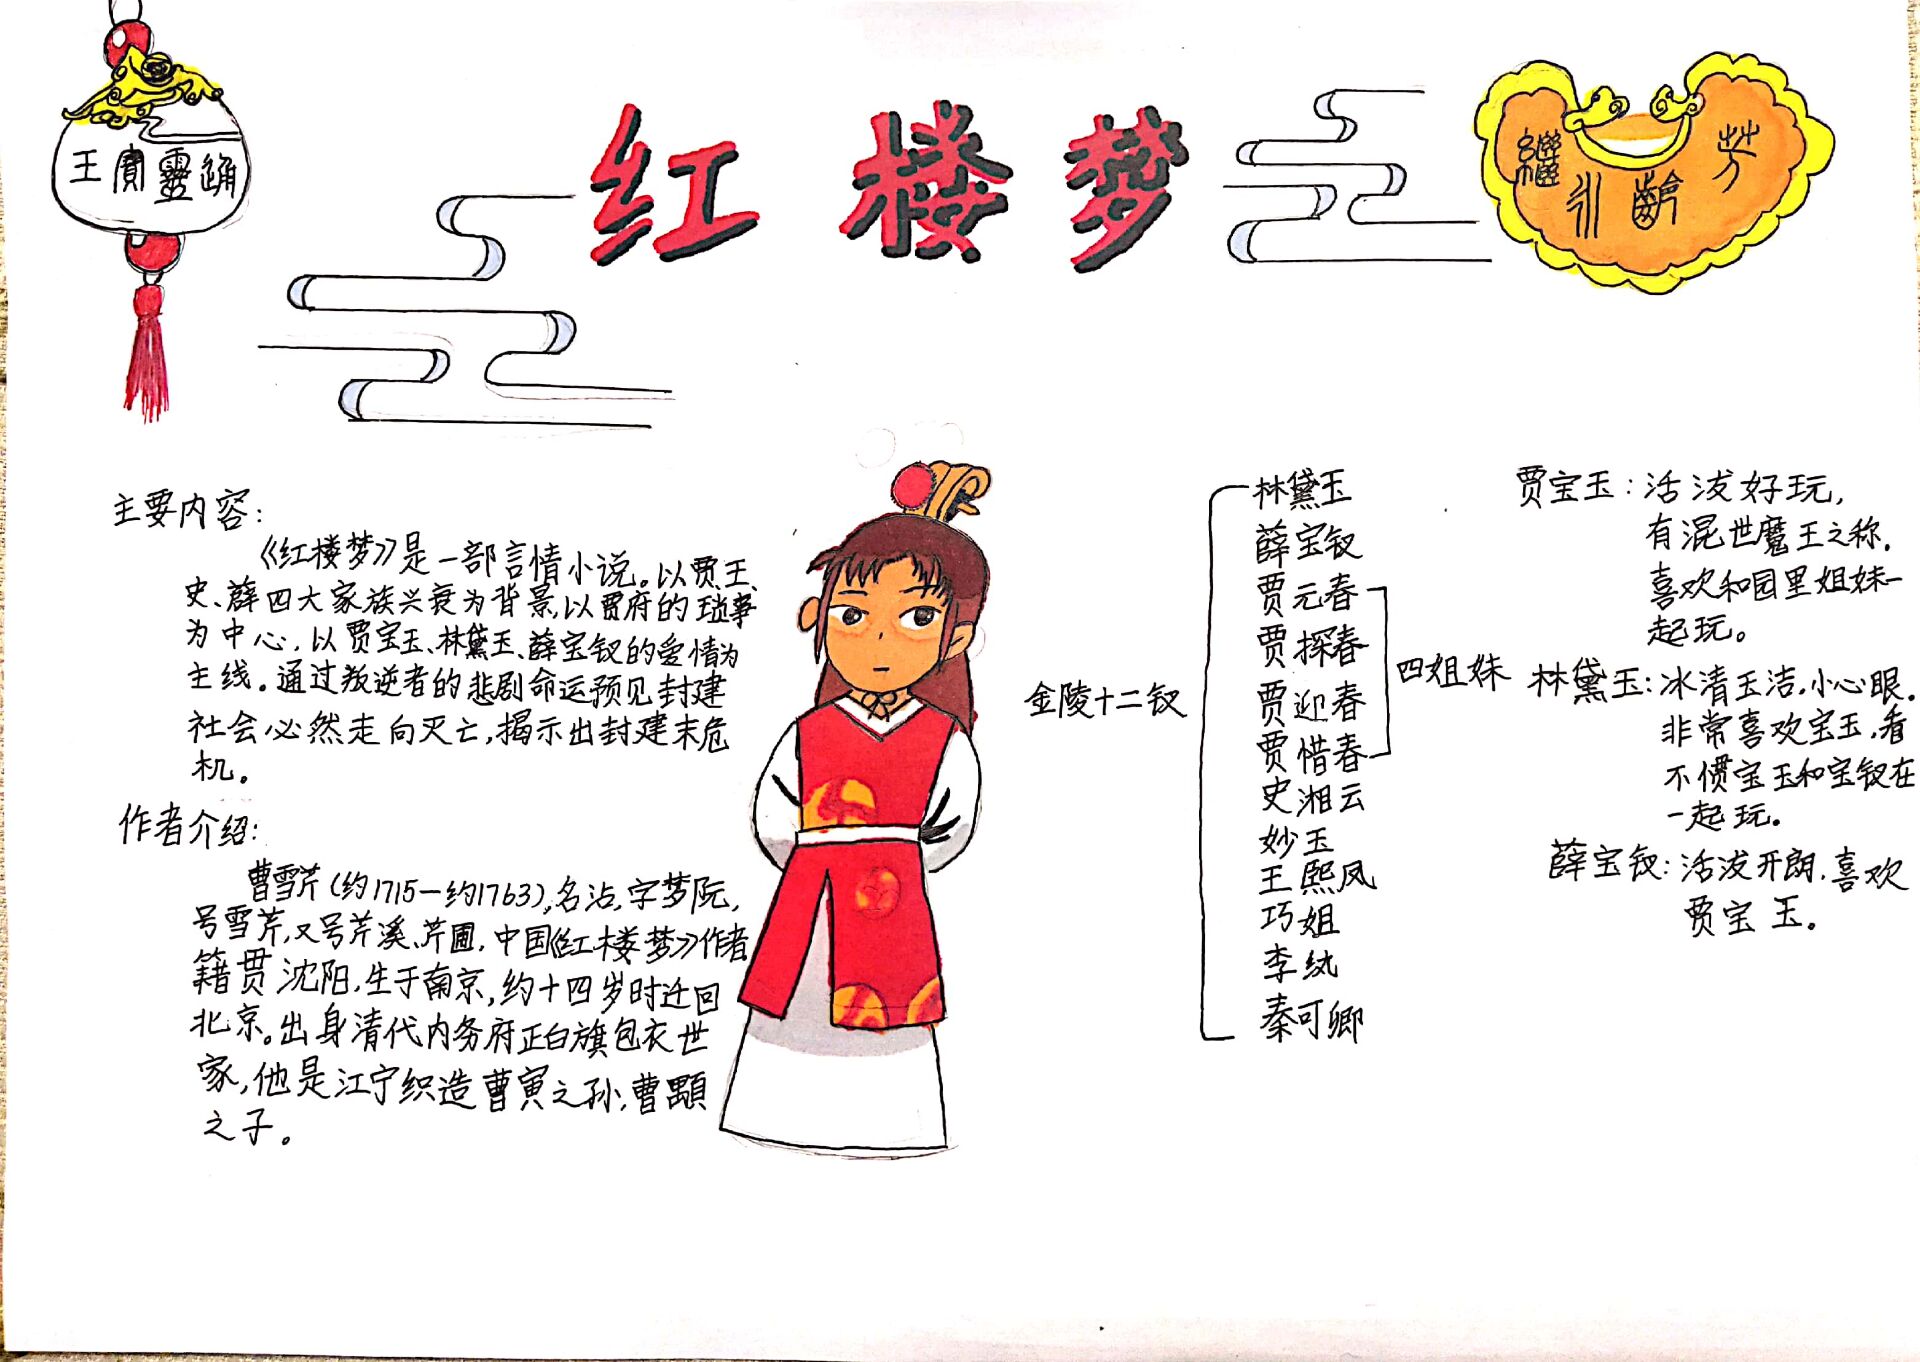 王寳靈通
红楼梦
繼
引
齡
芳
主要内容:
《红楼梦》是一部言情小说。以贾、王、
史、薛四大家族兴衰为背景,以贾府的琐事
为中心,以贾宝玉、林黛玉、薛宝钗的爱情为
主线。通过叛逆者的悲剧命运预见封建
社会必然走向灭亡,揭示出封建末危
机。
作者介绍:
曹雪芹(约1715—约1763),名沾,字梦阮,
号雪芹,又号芹溪、芹圃,中国《红楼梦》作者
籍贯沈阳,生于南京,约十四岁时迁回
北京。出身清代内务府正白旗包衣世
家,他是江宁织造曹寅之孙,曹顒
之子。
金陵十二钗
林黛玉
薛宝钗
贾元春
贾探春
贾迎春
贾惜春
史湘云
妙玉
王熙凤
巧姐
李纨
秦可卿
四姐妹
贾宝玉:活泼好玩,
有混世魔王之称.
喜欢和园里姐妹一
起玩。
林黛玉:冰清玉洁,小心眼.
非常喜欢宝玉,看
不惯宝玉和宝钗在
一起玩。
薛宝钗:活泼开朗.喜欢
贾宝玉。